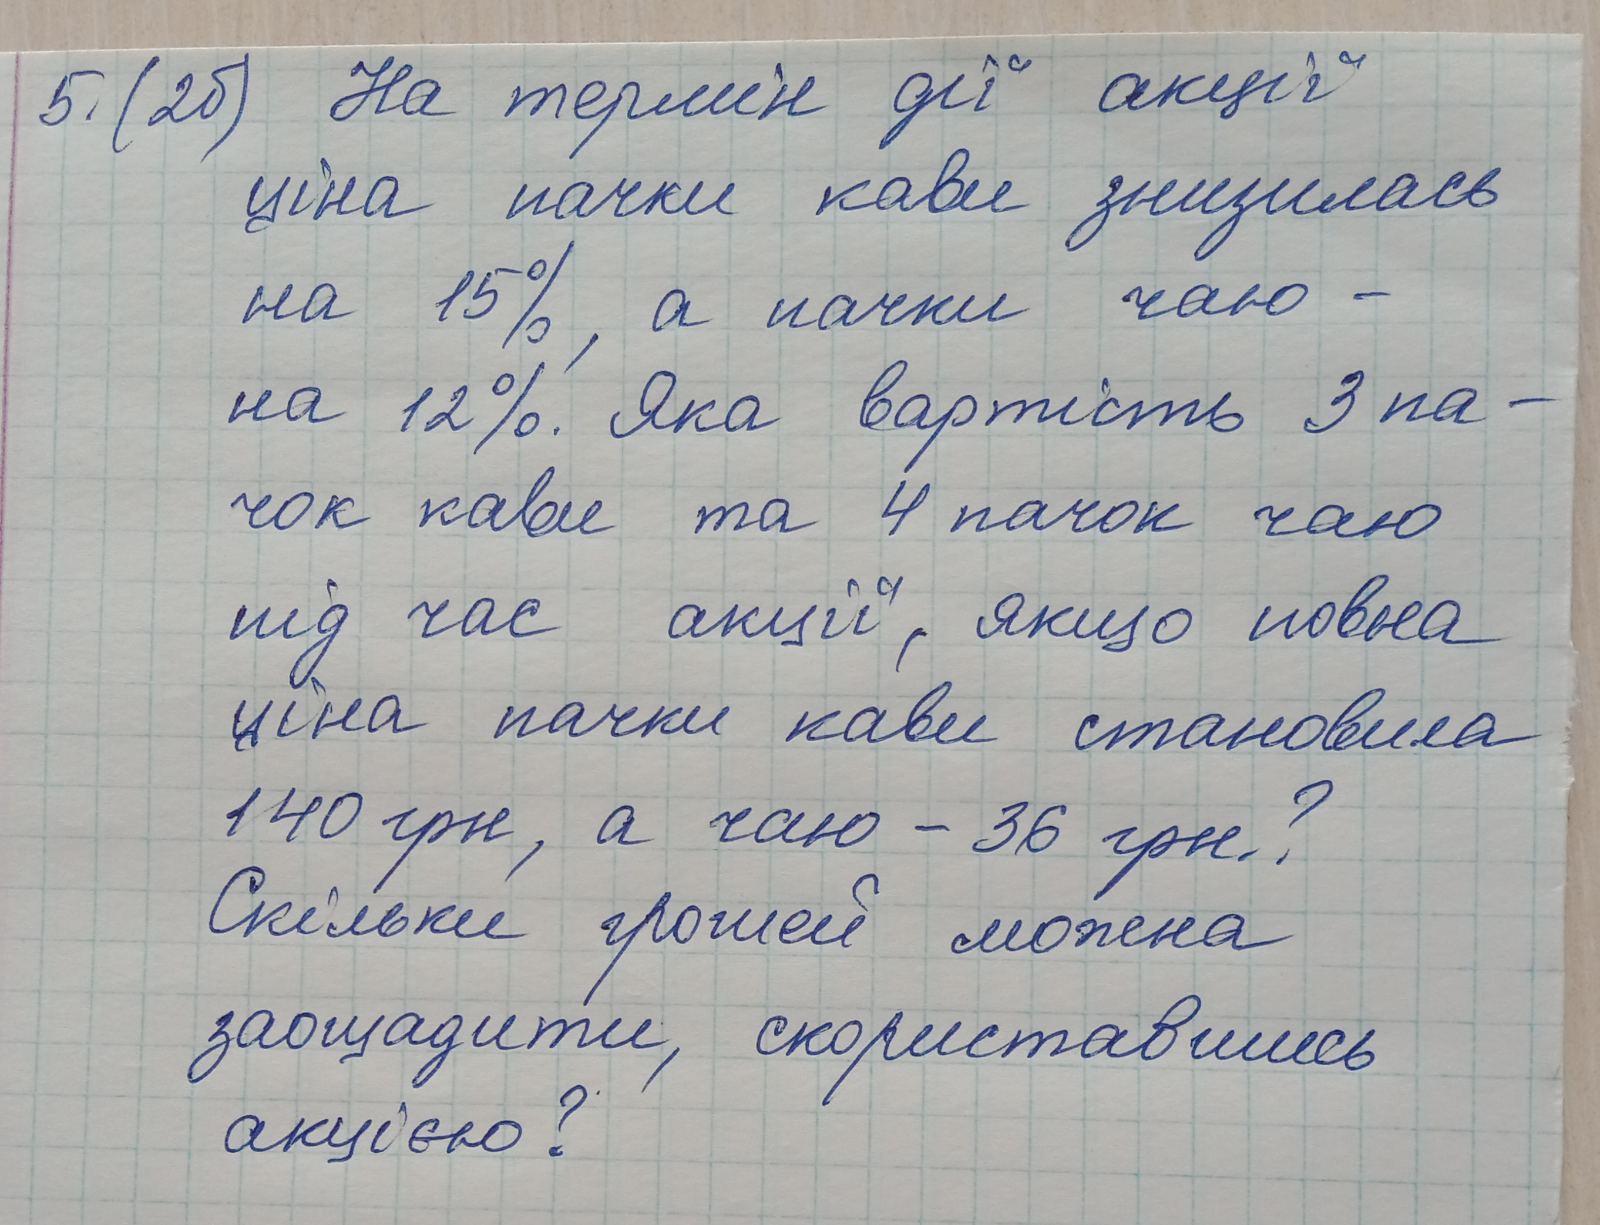 5. (2б) На термін дії акції
ціна пачки кави знизилась
на 15%, а пачки чаю -
на 12%. Яка вартість 3 па-
чок кави та 4 пачок чаю
під час акції, якщо повна
ціна пачки кави становила
140 грн, а чаю - 36 грн.?
Скільки грошей можна
заощадити, скориставшись
акцією?